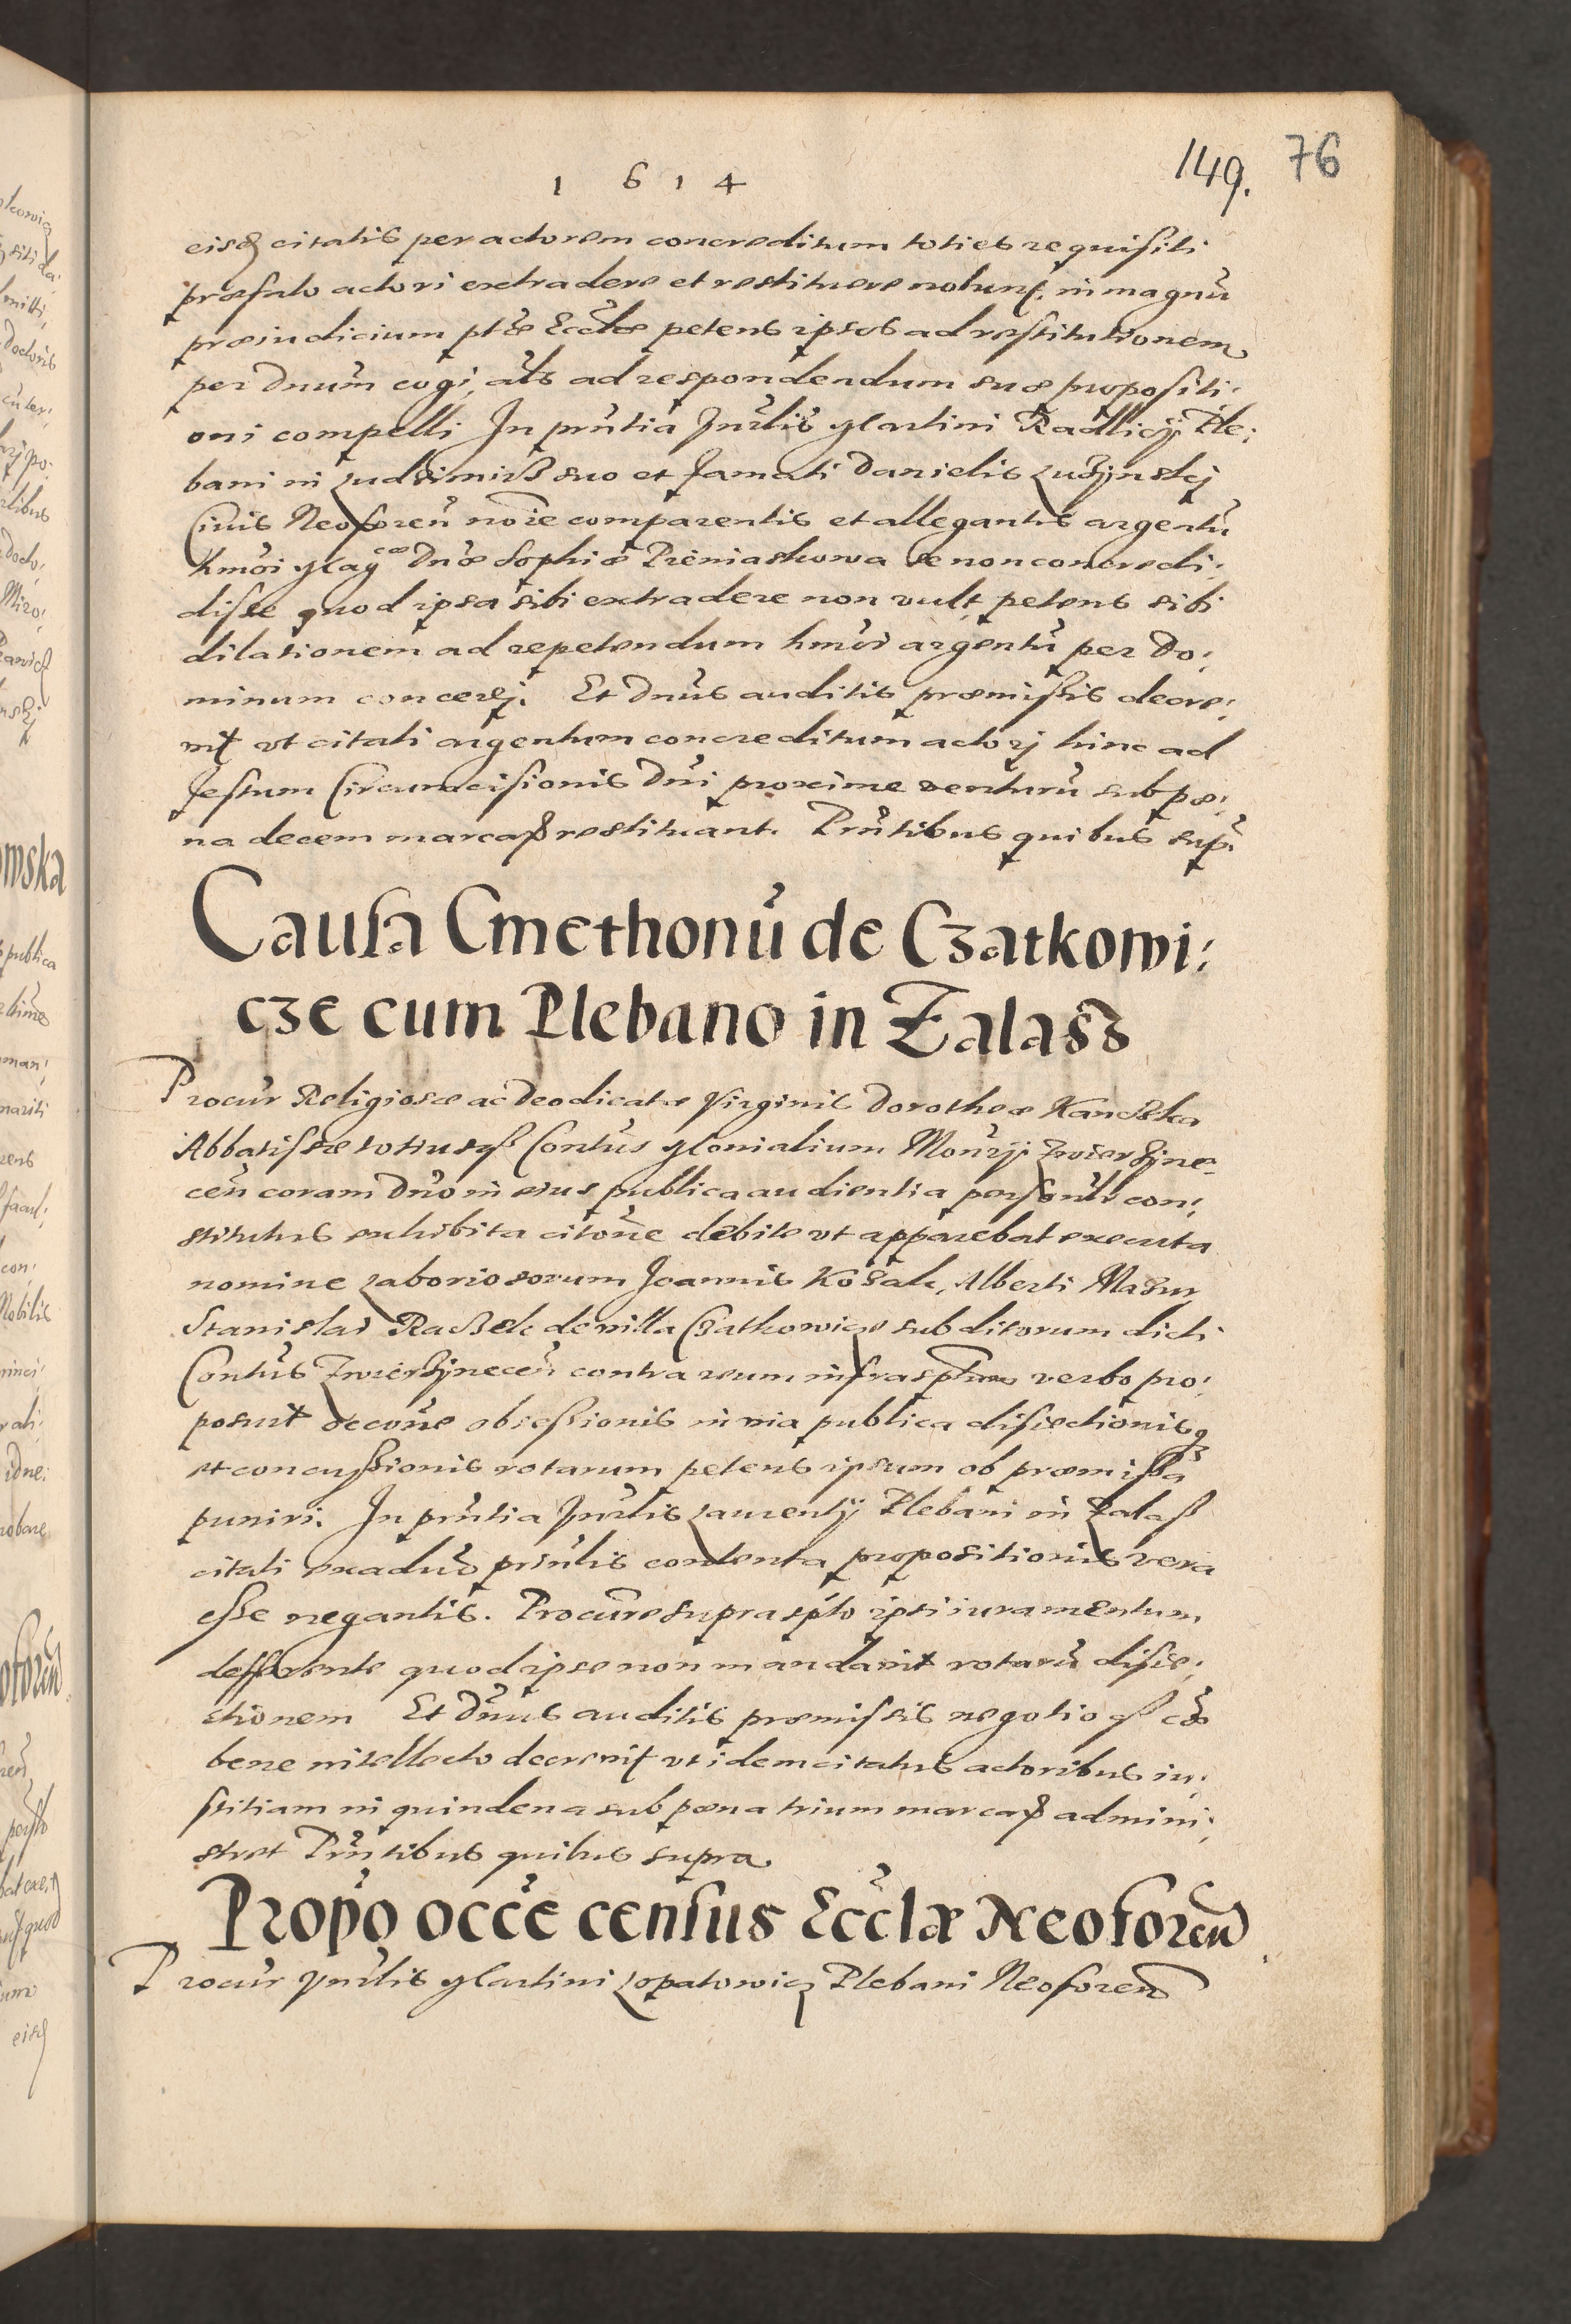 1614
149. 76
eisdem citatis per actorem concreditum toties requisiti
præfato actori extradere et restituere nolunt, in magnū
præiudicium ptæ Ecclæ petens ipsos ad restitutionem
per Dnum cogi, als ad respondendum suæ propositi:
oni compelli In prntia Vnrlis Martini Radlicij Ple:
bani in Ludzimirz suo et famati Danielis
Ciuis Neoforen noie comparentis et allegantis argentū
hmoi Magcæ Dnæ Sophiæ Pieniaskowa se non concredi:
disse quod ipsa sibi extradere non vult, petens sibi
dilationem ad repetendum hmoi argentū per Do:
minum concedj. Et Dnus auditis præmissis decre:
uit vt citati argentum concreditum actorj hinc ad
festum Circumcisionis Dni proxime venturū sub pœ:
na decem marcarum restituant. Prntibus quibus supra
Causa Cmethonū de Czatkowi:
cze cum Plebano in Zalasz
Procur Religiosæ ac Deodicatæ Virginis Dorotheæ Kanczka
Abbatissæ totiusque Contus Monialium Monrij Zwierzijne
cen coram Dno in eius publica audientia personlr con:
stitutus exhibita citone debite vt apparebat executa
nomine Laboriosorum Joannis Kozak, Alberti Mazur,
Stanislai Raszek de villa Czatkowicze subditorum dicti
Contus Zwierzijnecen contra reum infrasptum verbo pro:
posuit occone obsessionis in via publica disiectionisque
et concussionis rotarum petens ipsum ob præmissa
puniri. In prntia Vnrlis Laurentij Plebani in Zalasz
citati ex aduerso prsnlis contenta propositionis vera
esse negantis. Procure suprasplo ipsi iuramentum
defferente quod ipse non mandauit rotarū disie:
ctionem Et Dnus auditis præmissis negotioque cæ
bene intellecto decreuit vt idem citatus actoribus iu:
stitiam in quindena sub pœna trium marcarum admini:
stret Prntibus quibus supra
Propo occe census Ecclæ Neoforen
Procur Vnrlis Martini Lopatowicz Plebani Neoforen